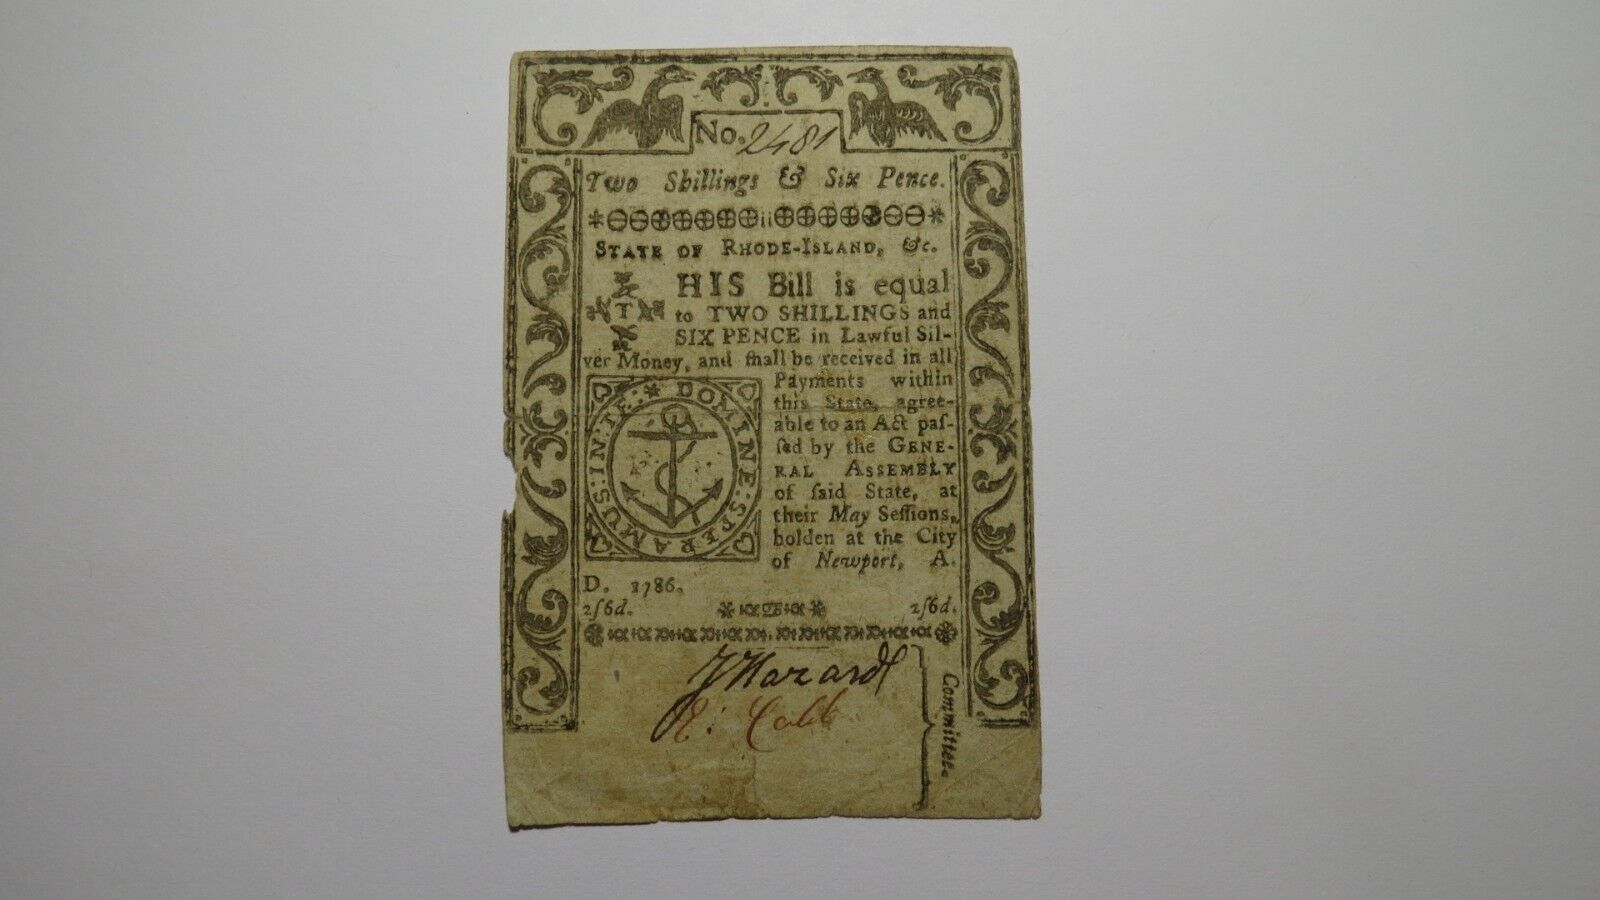 No. 2481
Two Shillings & Six Pence.
STATE OF RHODE-ISLAND, &c.
THIS Bill is equal
to TWO SHILLINGS and
SIX PENCE in Lawful Sil-
ver Money, and ſhall be received in all
Payments within
this State, agree-
able to an Act paſ-
ſed by the GENE-
RAL ASSEMBLY
of ſaid State, at
their May Seſſions,
holden at the City
of Newport, A.
D. 1786.
IN TE: * DOMINE: SPERAMUS:
2ſ6d. 2ſ6d.
J Hazard
E: Cobb
Committee